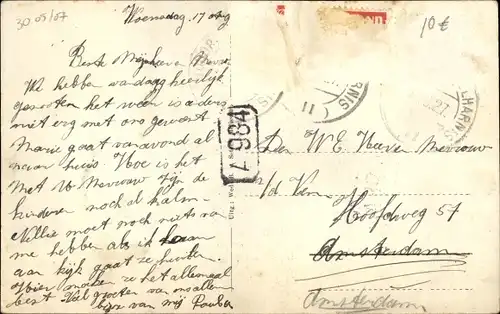 30 05/07
Woensdag 17 Aug
10 €
Beste Mijnheer Mevr
We hebben vandaag heerlijk
genoten het weer is anders
niet erg met ons geweest
Marie gaat vanavond al
naar huis. Hoe is het
Met U Mevrouw zijn de
kinderen noch al kalm
Nellie moet noch niets van
me hebben als ik haar
aan kijk gaat ze huilen.
Hier maken ze het allemaal
best. Veel groeten van ons allen
van mij
A 984
Uitg.: Wed.
HARNIS
11
LHARNIS
Den W E Heere Mevrouw
v/d Ven
Hoofdweg 57
Amsterdam
Amsterdam